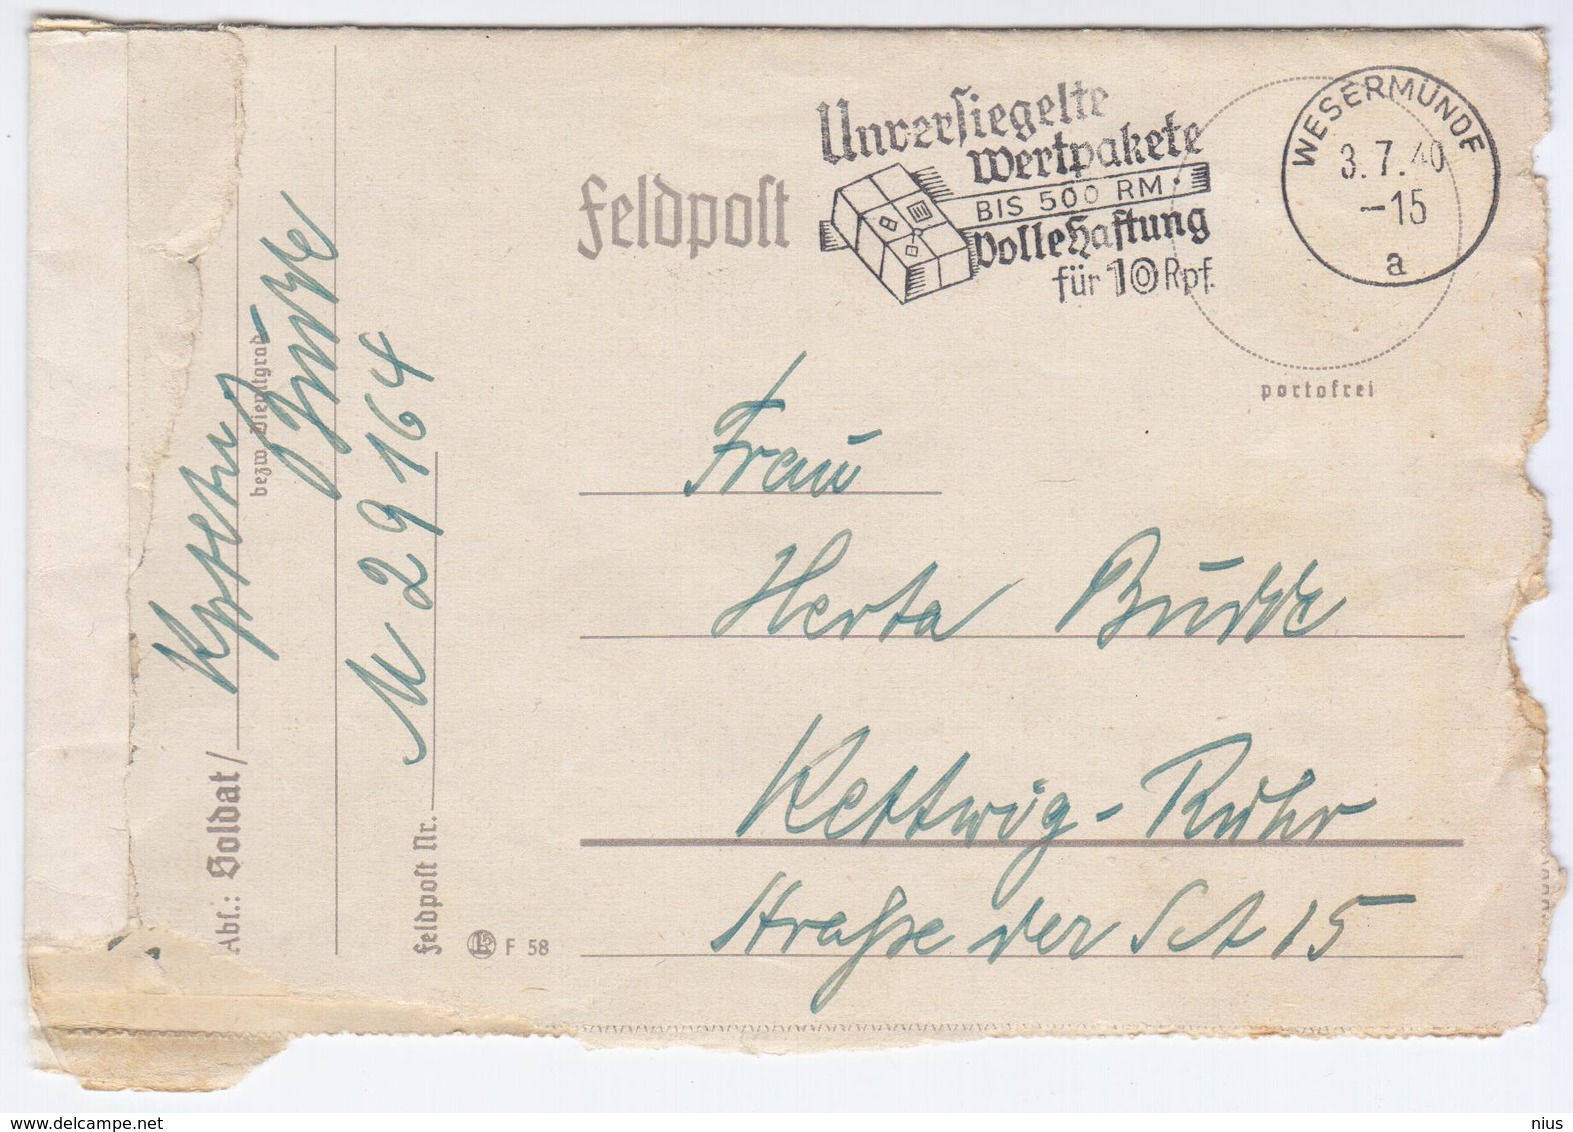 Unversiegelte
Wertpakete
BIS 500 RM.
Volle Haftung
für 10 Rpf.
WESERMÜNDE
3.7.40
-15
a
Feldpost
portofrei
Frau
Herta Budde
Kettwig-Ruhr
Straße der SA 15
Abs.: Soldat/
bezw. Dienstgrad
Budde
M 29164
Feldpost Nr.
F 58
nius